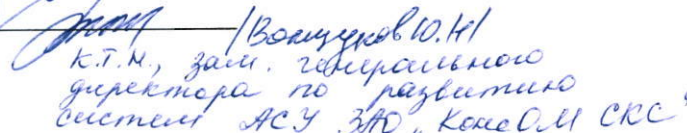 Ю.Н/
к.т.н., зам. генерального
директора по развитию
систем АСУ ЗАО „КонсОМ СКС"